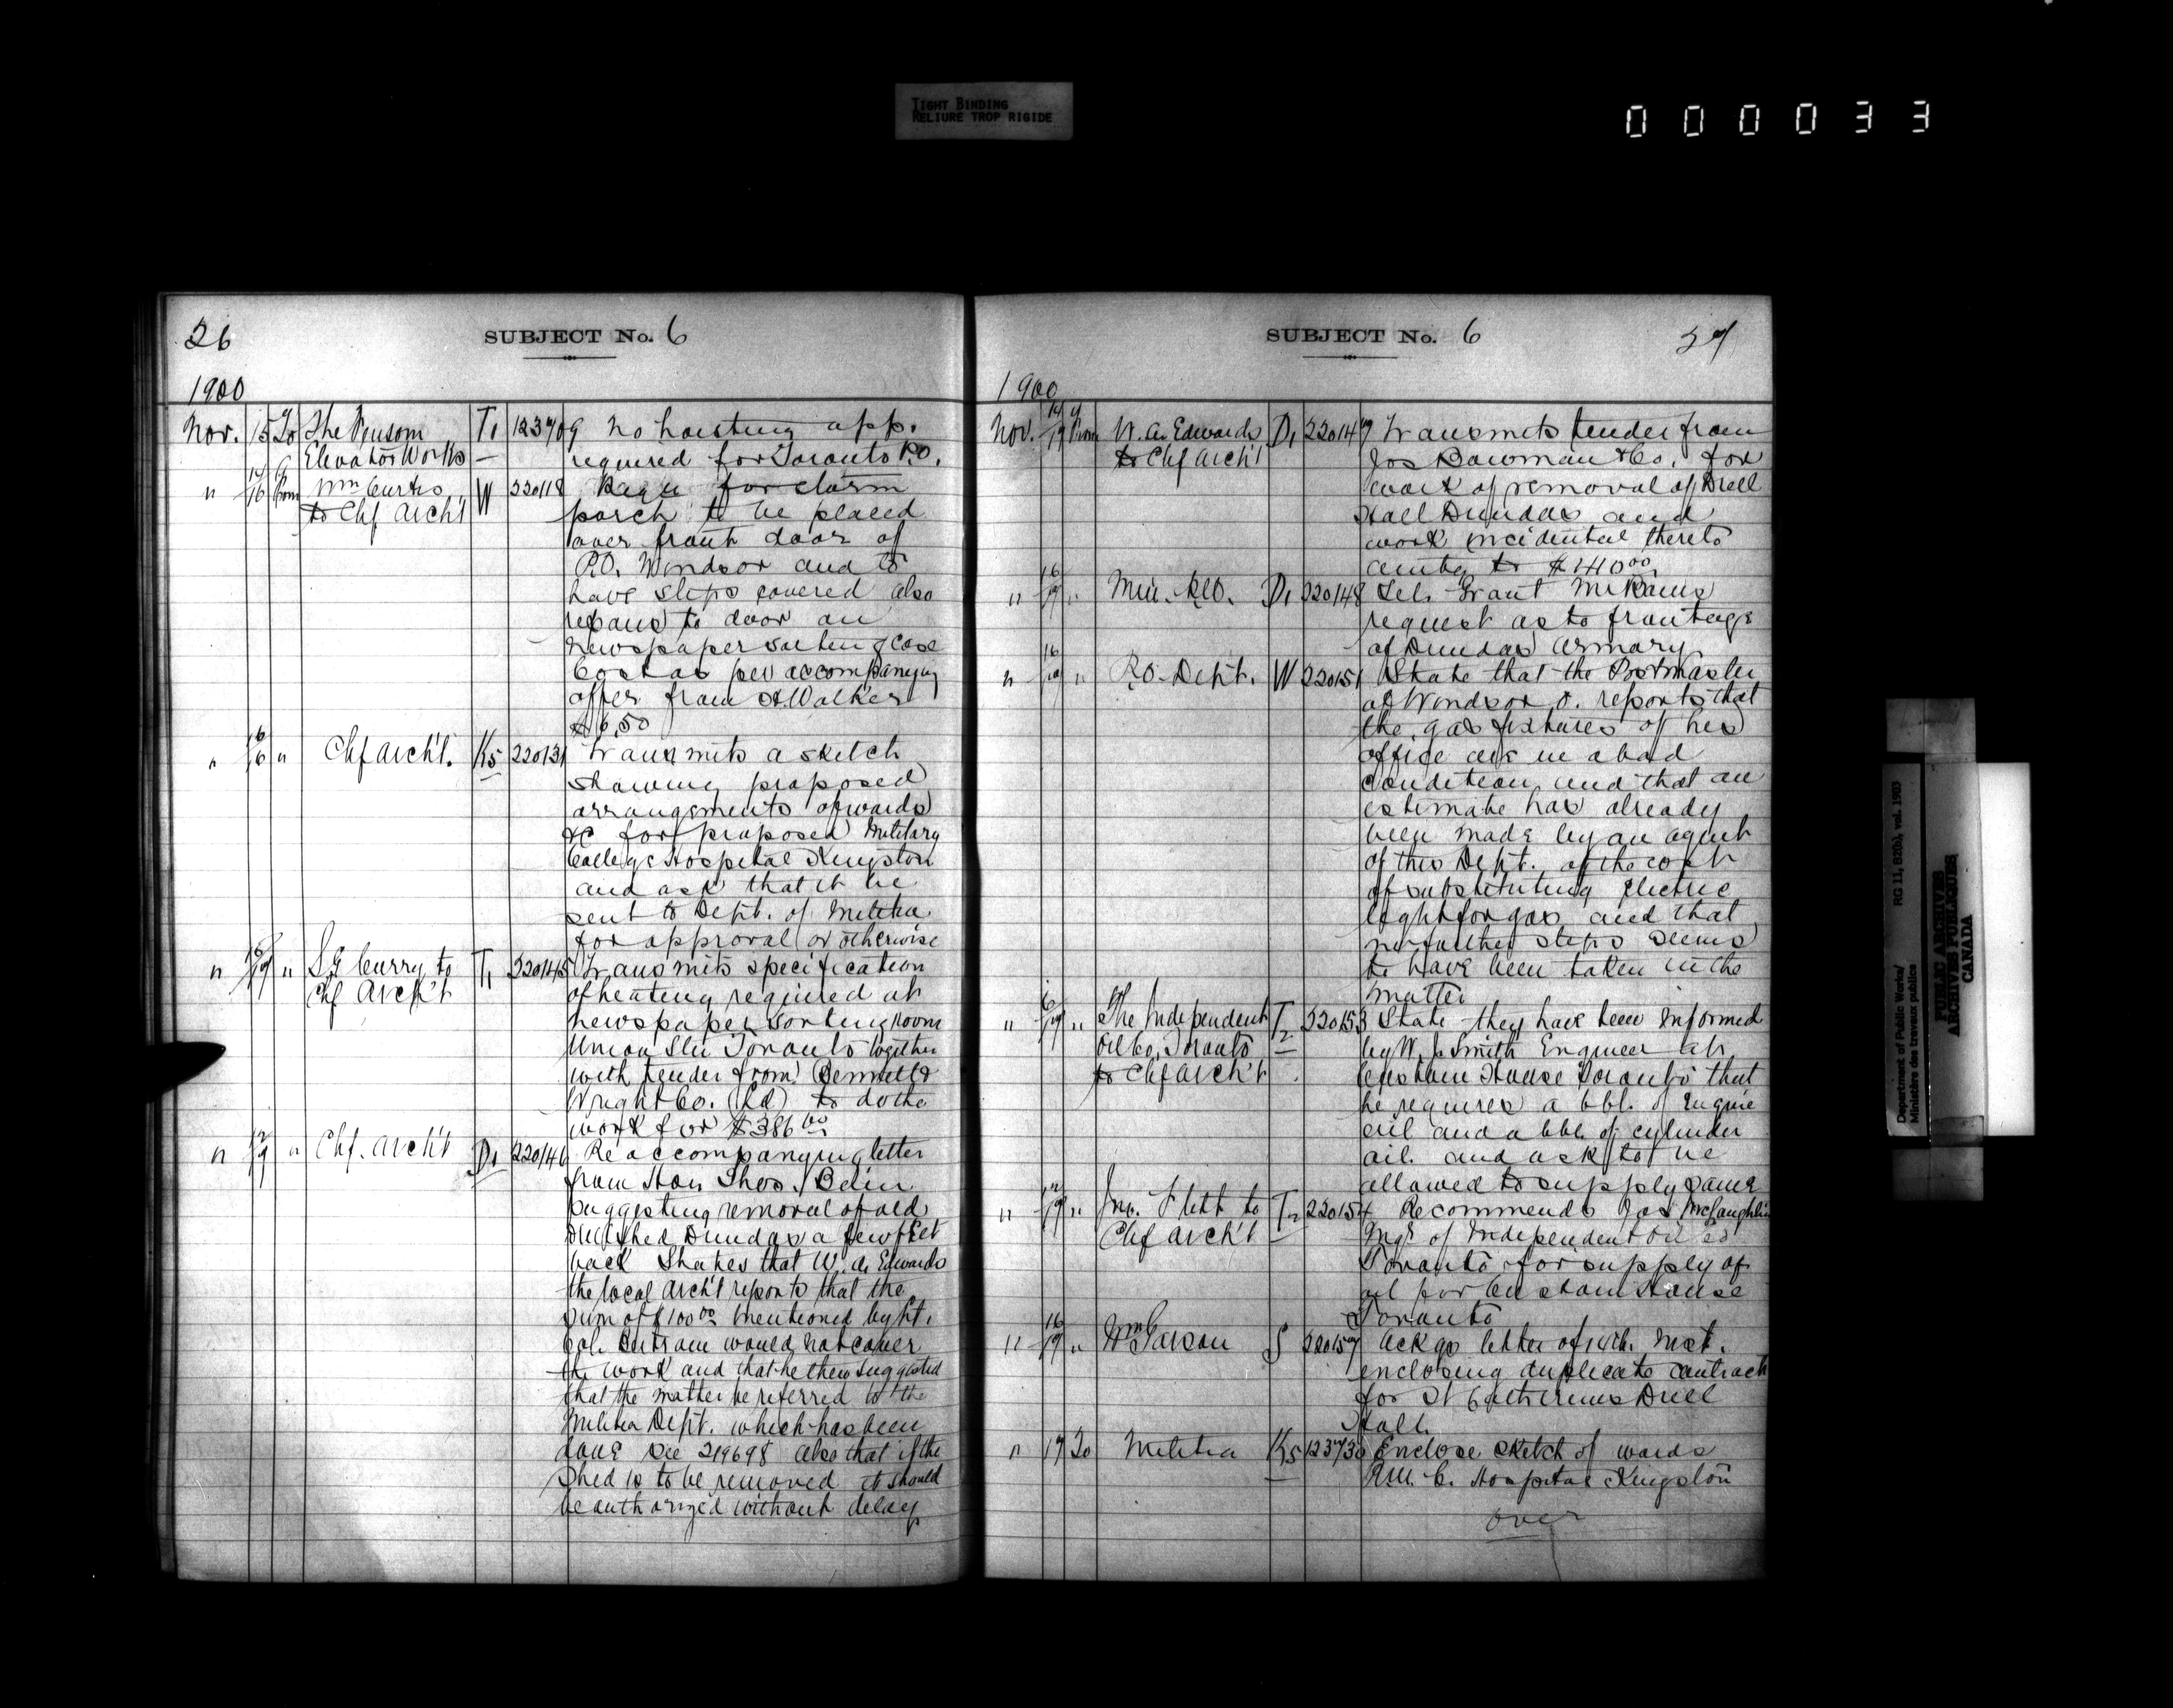 TIGHT BINDING
RELIURE TROP RIGIDE
000033
26
SUBJECT No. 6
1900
Nov. 15 To The Fensom T1 123709 No hoisting app.
Elevator Works — required for Toronto P.O.
" 14/16 From Wm Curtis W 220118 Requ for storm
to Chf Arch't porch to be placed
over front door of
P.O. Windsor and to
have steps covered also
repairs to door an
newspaper sorting case
Cost as per accompanying
offer from A. Walker
$6.50
" 16/16 " Chf Arch't. K5 220131 Transmits a sketch
showing proposed
arrangements of wards
&c for proposed Military
College Hospital Kingston
and ask that it be
sent to Dept. of Militia
for approval or otherwise
" 16/19 " S.G. Curry to T1 220145 Transmits specification
Chf Arch't of heating required at
newspaper sorting room
Union Stn Toronto together
with tender from Bennett &
Wright Co. (Ld) to do the
work for $386.00
" 17/19 " Chf. Arch't D1 220146 Re accompanying letter
from Hon Thos. Bain
suggesting removal of old
Drill shed Dundas a few feet
back States that W. A. Edwards
the local Arch't reports that the
sum of $100.00 mentioned by Lt.
Col. Bertram would not cover
the work and that he then suggested
that the matter be referred to the
Militia Dept. which has been
done see 219698 also that if the
shed is to be removed it should
be authorized without delay
SUBJECT No. 6
27
1900
Nov. 14/19 From W. A. Edwards D1 220147 Transmits tender from
to Chf Arch't Jos Bowman & Co. for
work of removal of Drill
Hall Dundas and
work incidental thereto
amtg to $140.00
" 16/19 " Min. D1 220148 Tels Grant Mr Bains
request as to frontage
of Dundas Armory
" 16/19 " P.O. Dept. W 220151 State that the Postmaster
at Windsor O. reports that
the gas fixtures of his
office are in a bad
condition and that an
estimate has already
been made by an agent
of this Dept. of the cost
of substituting electric
light for gas and that
no further steps seems
to have been taken in the
matter
" 16/19 " The Independent T2 220153 State they have been informed
Oil Co. Toronto — by W. J. Smith Engineer at
to Chf Arch't Custom House Toronto that
he requires a bbl. of Engine
oil and a bbl. of cylinder
oil. and ask to be
allowed to supply same
" 17/19 " Jno. Flett to T2 220154 Recommends Jos McLaughlin
Chf Arch't Mgr of Independent Oil Co
Toronto for supply of
oil for Custom House
Toronto
" 16/19 " Wm Garson S 220157 Ack gs letter of 14th. inst.
enclosing duplicate contract
for St Catherines Drill
Hall.
" 19 To Militia K5 123730 Enclose sketch of wards
R.M.C. Hospital Kingston
over
Department of Public Works/
Ministère des travaux publics
RG 11, B2(b), vol. 1903
PUBLIC ARCHIVES
ARCHIVES PUBLIQUES
CANADA